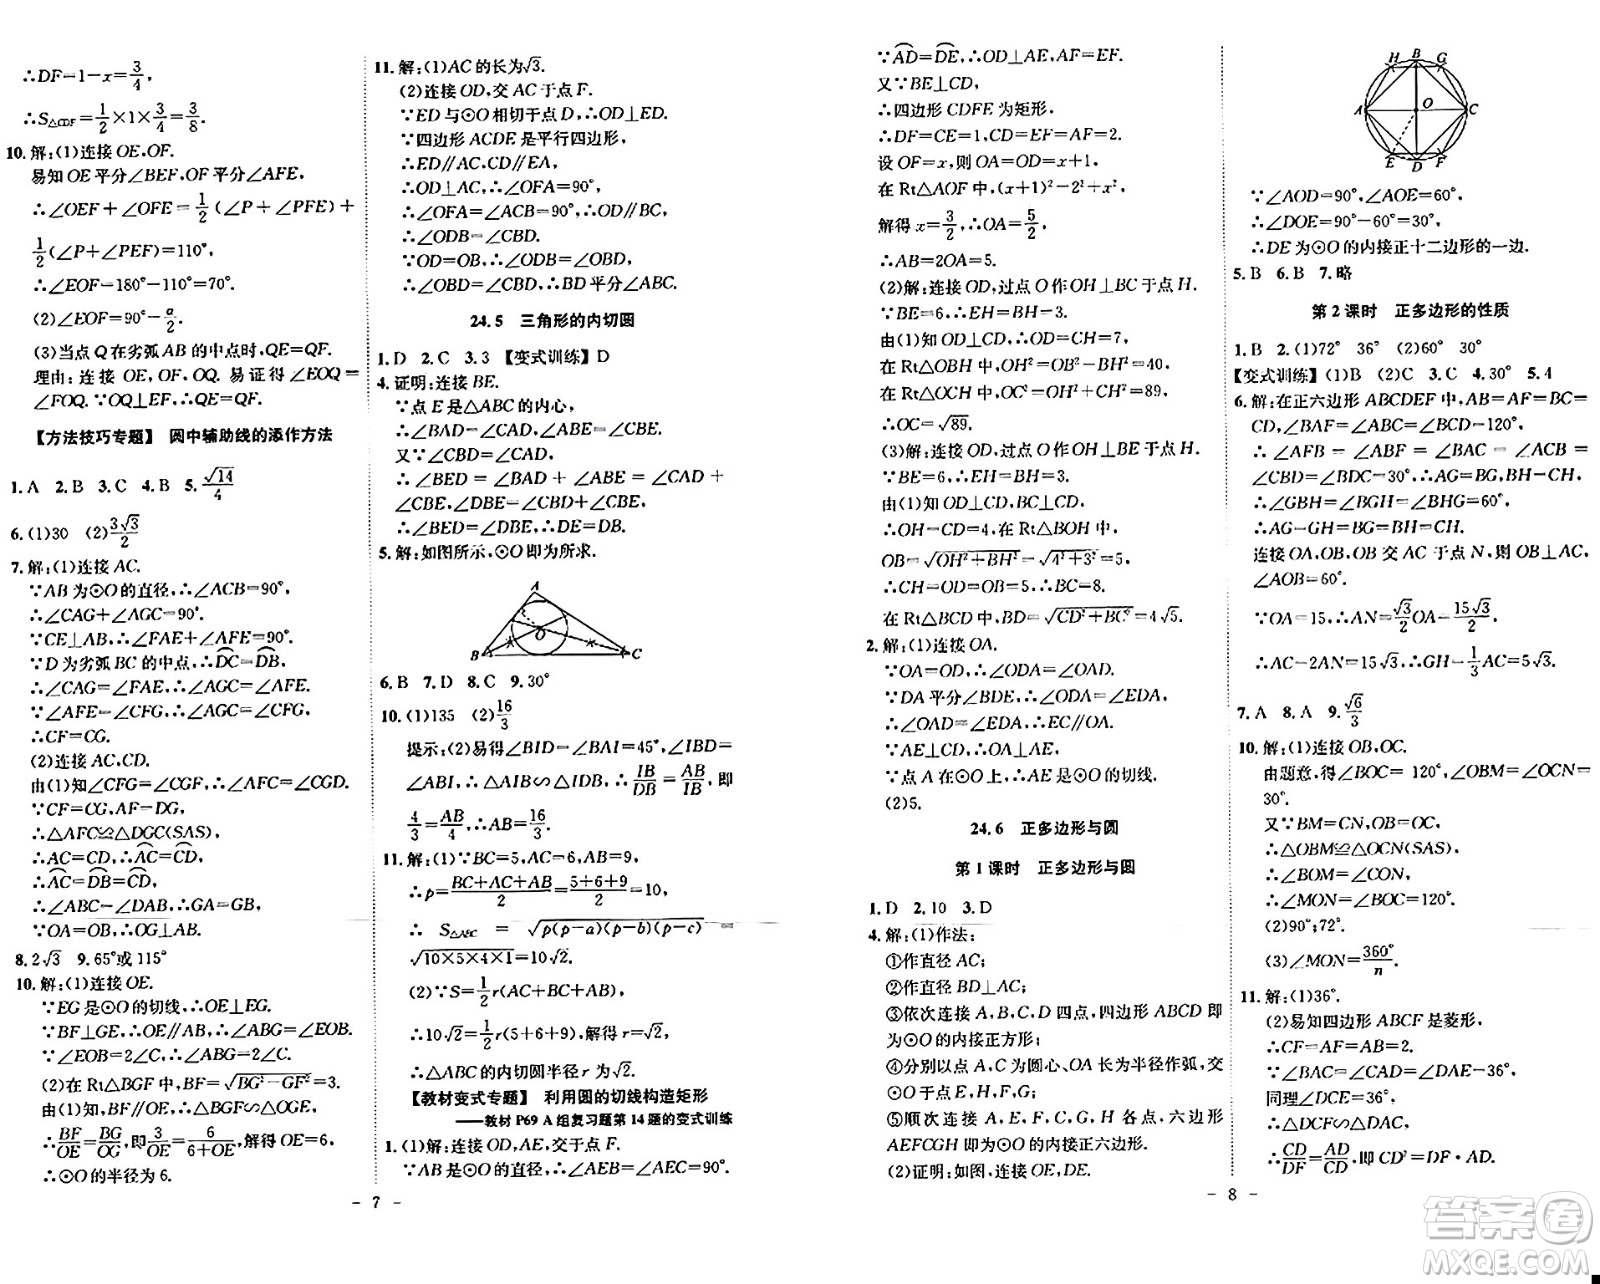 ∴DF=1-x=3/4,
∴S△CDF=1/2×1×3/4=3/8.
10. 解:(1)连接 OE,OF.
易知 OE 平分∠BEF,OF 平分∠AFE,
∴∠OEF+∠OFE=1/2(∠P+∠PFE)+
1/2(∠P+∠PEF)=110°,
∴∠EOF=180°-110°=70°.
(2)∠EOF=90°-α/2.
(3)当点 Q 在劣弧 AB 的中点时,QE=QF.
理由:连接 OE,OF,OQ.易证得∠EOQ=
∠FOQ.∵OQ⊥EF,∴QE=QF.
【方法技巧专题】 圆中辅助线的添作方法
1. A 2. B 3. C 4. B 5. √14/4
6. (1)30 (2)3√3/2
7. 解:(1)连接 AC.
∵AB 为⊙O 的直径,∴∠ACB=90°,
∴∠CAG+∠AGC=90°.
∵CE⊥AB,∴∠FAE+∠AFE=90°.
∵D 为劣弧 BC 的中点,∴DC=DB,
∴∠CAG=∠FAE,∴∠AGC=∠AFE.
∵∠AFE=∠CFG,∴∠AGC=∠CFG,
∴CF=CG.
(2)连接 AC,CD.
由(1)知∠CFG=∠CGF,∴∠AFC=∠CGD.
∵CF=CG,AF=DG,
∴△AFC≌△DGC(SAS),
∴AC=CD,∴AC=CD,
∴AC=DB=CD,
∴∠ABC=∠DAB,∴GA=GB,
∵OA=OB,∴OG⊥AB.
8. 2√3 9. 65°或 115°
10. 解:(1)连接 OE.
∵EG 是⊙O 的切线,∴OE⊥EG.
∵BF⊥GE,∴OE∥AB,∴∠ABG=∠EOB.
∵∠EOB=2∠C,∴∠ABG=2∠C.
(2)在 Rt△BGF 中,BF=√(BG²-GF²)=3.
由(1)知,BF∥OE,∴△BGF∽△OGE,
∴BF/OE=BG/OG,即3/OE=6/(6+OE),解得 OE=6,
∴⊙O 的半径为 6.
11. 解:(1)AC 的长为√3.
(2)连接 OD,交 AC 于点 F.
∵ED 与⊙O 相切于点 D,∴OD⊥ED.
∵四边形 ACDE 是平行四边形,
∴ED∥AC,CD∥EA,
∴OD⊥AC,∴∠OFA=90°,
∴∠OFA=∠ACB=90°,∴OD∥BC,
∴∠ODB=∠CBD.
∵OD=OB,∴∠ODB=∠OBD,
∴∠OBD=∠CBD,∴BD 平分∠ABC.
24.5 三角形的内切圆
1. D 2. C 3. 3 【变式训练】D
4. 证明:连接 BE.
∵点 E 是△ABC 的内心,
∴∠BAD=∠CAD,∠ABE=∠CBE.
又∵∠CBD=∠CAD,
∴∠BED=∠BAD+∠ABE=∠CAD+
∠CBE,∠DBE=∠CBD+∠CBE,
∴∠BED=∠DBE,∴DE=DB.
5. 解:如图所示,⊙O 即为所求.
A
O
B C
6. B 7. D 8. C 9. 30°
10. (1)135 (2)16/3
提示:(2)易得∠BID=∠BAI=45°,∠IBD=
∠ABI,∴△AIB∽△IDB,∴IB/DB=AB/IB,即
4/3=AB/4,∴AB=16/3.
11. 解:(1)∵BC=5,AC=6,AB=9,
∴p=(BC+AC+AB)/2=(5+6+9)/2=10,
∴ S△ABC = √(p(p-a)(p-b)(p-c)) =
√(10×5×4×1)=10√2.
(2)∵S=1/2r(AC+BC+AB),
∴10√2=1/2r(5+6+9),解得 r=√2,
∴△ABC 的内切圆半径 r 为√2.
【教材变式专题】 利用圆的切线构造矩形
——教材 P69 A 组复习题第 14 题的变式训练
1. (1)解:连接 OD,AE,交于点 F.
∵AB 是⊙O 的直径,∴∠AEB=∠AEC=90°.
- 7 -
∵AD=DE,∴OD⊥AE,AF=EF.
又∵BE⊥CD,
∴四边形 CDFE 为矩形,
∴DF=CE=1,CD=EF=AF=2.
设 OF=x,则 OA=OD=x+1,
在 Rt△AOF 中,(x+1)²=2²+x²,
解得 x=3/2,∴OA=5/2,
∴AB=2OA=5.
(2)解:连接 OD,过点 O 作 OH⊥BC 于点 H.
∵BE=6,∴EH=BH=3.
由(1)知 OD⊥CD,∴OH=CD=4√5.
在 Rt△OBH 中,OH²=OB²-BH²=80,
在 Rt△OCH 中,OC²=OH²+CH²=89,
∴OC=√89.
(3)解:连接 OD,过点 O 作 OH⊥BC 于点 H.
∵BE=6,∴EH=BH=3.
由(1)知 OD⊥CD,BC⊥CD,
∴OH=CD=4,在 Rt△BOH 中,
OB=√(OH²+BH²)=√(4²+3²)=5,
∴CH=OD=OB=5,∴BC=8,
在 Rt△BCD 中,BD=√(CD²+BC²)=4√5.
2. 解:(1)连接 OA.
∵OA=OD,∴∠ODA=∠OAD.
∵DA 平分∠BDE,∴∠ODA=∠EDA,
∴∠OAD=∠EDA,∴EC∥OA.
∵AE⊥CD,∴OA⊥AE.
∵点 A 在⊙O 上,∴AE 是⊙O 的切线.
(2)5.
24.6 正多边形与圆
第 1 课时 正多边形与圆
1. D 2. 10 3. D
4. 解:(1)作法:
①作直径 AC;
②作直径 BD⊥AC;
③依次连接 A,B,C,D 四点,四边形 ABCD 即
为⊙O 的内接正方形;
④分别以点 A,C 为圆心,OA 长为半径作弧,交
⊙O 于点 E,H,F,G;
⑤顺次连接 A,E,F,C,G,H 各点,六边形
AEFCGH 即为⊙O 的内接正六边形.
(2)证明:如图,连接 OE,DE.
H B G
A O C
E D F
∵∠AOD=90°,∠AOE=60°,
∴∠DOE=90°-60°=30°,
∴DE 为⊙O 的内接正十二边形的一边.
5. B 6. B 7. 略
第 2 课时 正多边形的性质
1. B 2. (1)72° 36° (2)60° 30°
【变式训练】(1)B (2)C 3. C 4. 30° 5. 4
6. 解:在正六边形 ABCDEF 中,AB=AF=BC=
CD,∠BAF=∠ABC=∠BCD=120°,
∴∠AFB=∠ABF=∠BAC=∠ACB=
∠CBD=∠BDC=30°,∴AG=BG,BH=CH,
∴∠GBH=∠BGH=∠BHG=60°,
∴AG=GH=BG=BH=CH.
连接 OA,OB,OB 交 AC 于点 N,则 OB⊥AC,
∠AOB=60°.
∵OA=15,∴AN=√3/2OA=15√3/2,
∴AC=2AN=15√3,∴GH=1/3AC=5√3.
7. A 8. A 9. √6/3
10. 解:(1)连接 OB,OC.
由题意,得∠BOC=120°,∠OBM=∠OCN=
30°.
又∵BM=CN,OB=OC,
∴△OBM≌△OCN(SAS),
∴∠BOM=∠CON,
∴∠MON=∠BOC=120°.
(2)90° 72°
(3)∠MON=360°/n.
11. 解:(1)36°.
(2)易知四边形 ABCF 是菱形,
∴CF=AF=AB=2.
∵∠BAC=∠CAD=∠DAE=36°,
同理∠FCD=36°,
∴△DCF∽△DAC,
∴CD/DF=AD/CD,即 CD²=DF·AD.
- 8 -
答案圈
MXQE.COM